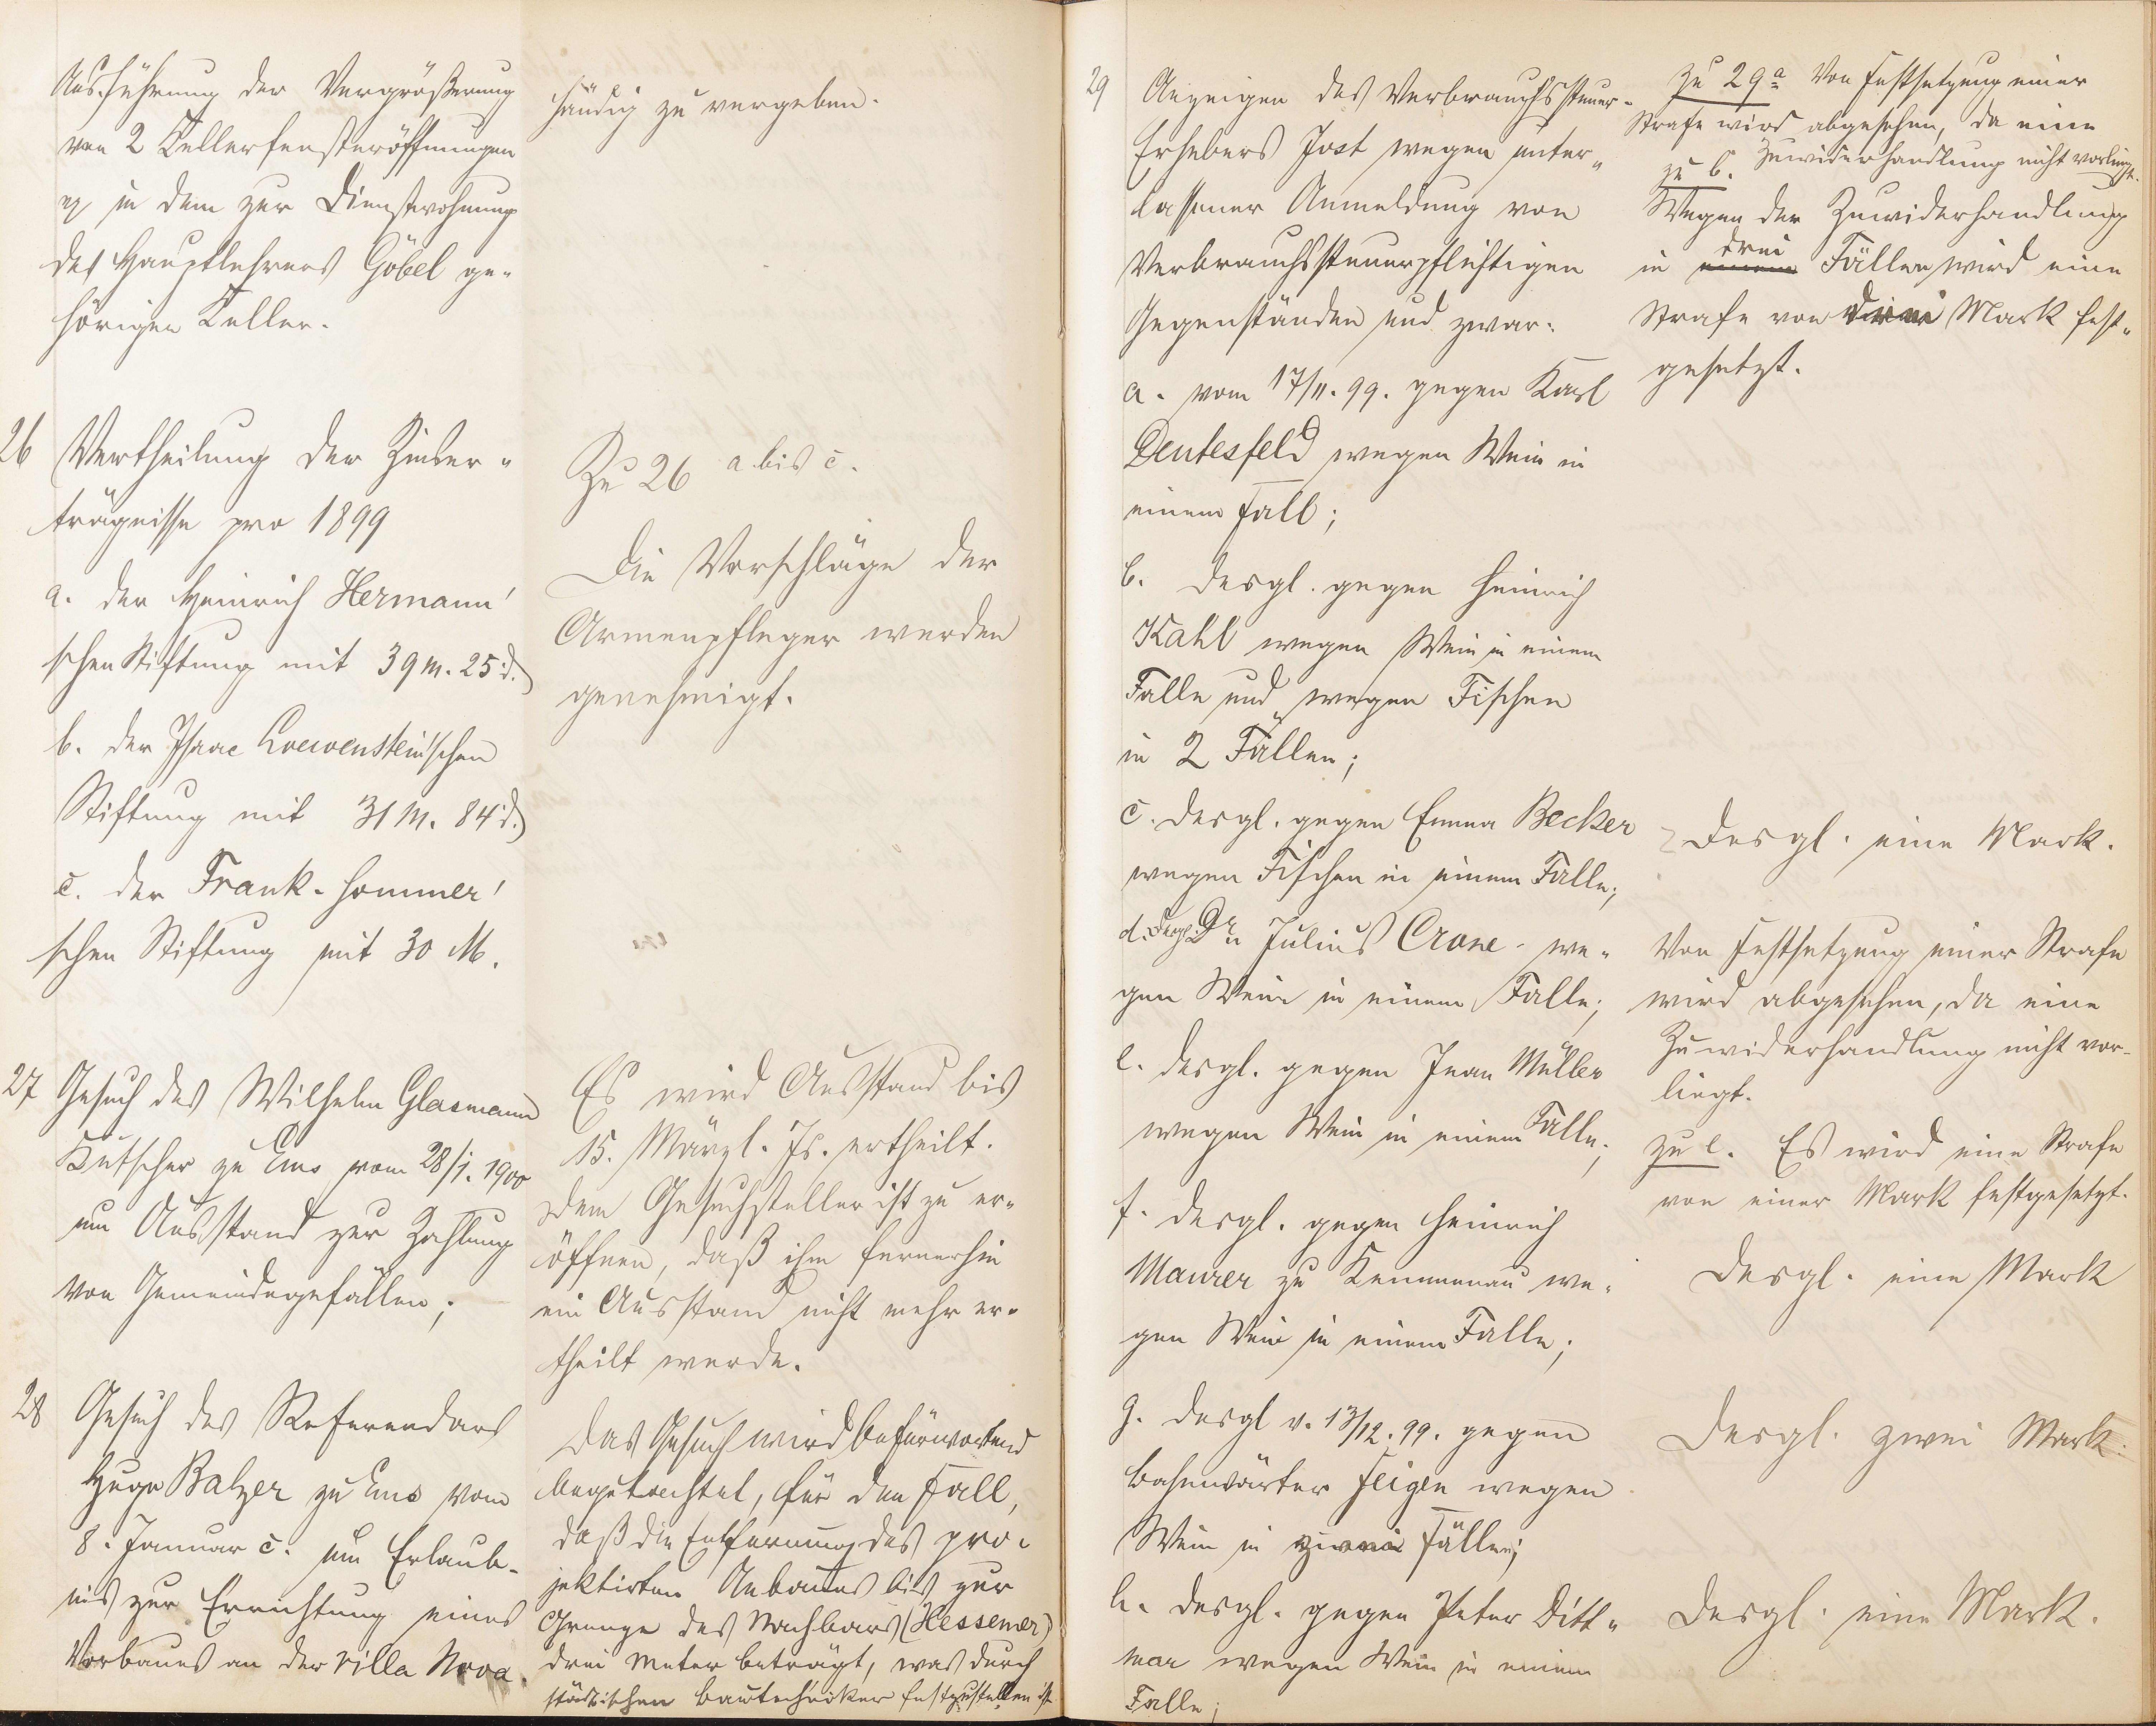 Ausführung der Vergrößerung
von 2 Kellerfensteröffnungen
in dem zur Dienstwohnung
des Hauptlehrers Göbel ge-
hörigen Keller.
händig zu vergeben.
26 Vertheilung der Zinser-
trägnisse pro 1899
a. der Heinrich Hermann'
schen Stiftung mit 39 M. 25 d.
b. der Isaac Loewenstein'schen
Stiftung mit 31 M. 84 d.
c. der Frank-Hommer'
schen Stiftung mit 30 M.
Zu 26 a bis c.
Die Vorschläge der
Armenpfleger werden
genehmigt.
27 Gesuch des Wilhelm Glasmann
Kutscher zu Ems vom 28/1. 1900
um Ausstand zur Zahlung
von Gemeindegefällen;
Es wird Ausstand bis
15. März l. Js. ertheilt.
Dem Gesuchsteller ist zu er-
öffnen, daß ihm fernerhin
ein Ausstand nicht mehr er-
theilt werde.
28 Gesuch des Referendars
Hugo Balzer zu Ems vom
8. Januar c. um Erlaub-
nis zur Errichtung eines
Vorbaues an der Villa Nova.
Das Gesuch wird befürwortend
begutachtet, für den Fall,
daß die Entfernung des pro-
jektirten Anbaues bis zur
Grenze des Nachbars (Hessemer)
drei Meter beträgt, was durch
städtischen Bautechniker festzustellen ist
29 Anzeigen des Verbrauchssteuer-
Erhebers Jost wegen unter-
lassener Anmeldung von
Verbrauchssteuerpflichtigen
Gegenständen und zwar:
a. vom 17/11. 99. gegen Karl
Deutesfeld wegen Wein in
einem Fall;
b. desgl. gegen Heinrich
Kahl wegen Wein in einem
Falle und wegen Fischen
in 2 Fällen;
c. desgl. gegen Emma Becker
wegen Fischen in einem Falle;
d. desgl. Dr. Julius Crone we-
gen Wein in einem Falle;
e. desgl. gegen Jean Müller
wegen Wein in einem Falle;
f. desgl. gegen Heinrich
Maurer zu Kemmenau we-
gen Wein in einem Falle;
g. desgl v. 13/12. 99. gegen
Bahnwärter Feigen wegen
Wein in zwei Fällen;
h. desgl. gegen Peter Ditt-
mar wegen Wein in einem
Falle;
Zu 29a Von Festsetzung einer
Strafe wird abgesehen, da eine
Zuwiderhandlung nicht vorliegt.
zu b.
Wegen der Zuwiderhandlung
drei
in einem Fällen wird eine
Strafe von drei Mark fest-
gesetzt.
Desgl. eine Mark.
Von Festsetzung einer Strafe
wird abgesehen, da eine
Zuwiderhandlung nicht vor-
liegt.
zu e. Es wird eine Strafe
von einer Mark festgesetzt.
Desgl. eine Mark
Desgl. zwei Mark.
Desgl. eine Mark.